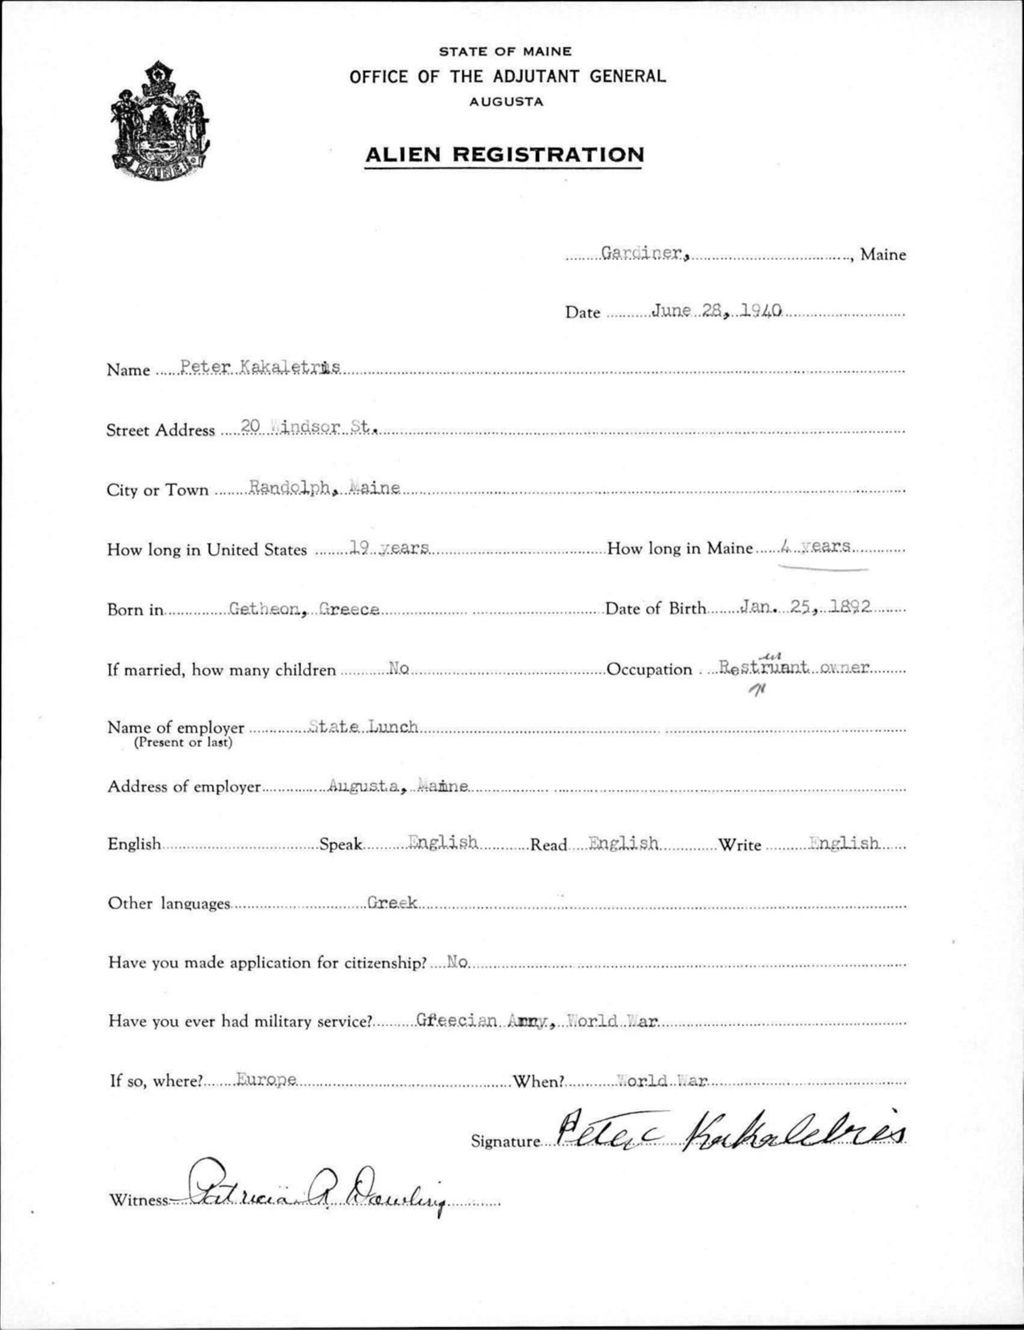 STATE OF MAINE
OFFICE OF THE ADJUTANT GENERAL
AUGUSTA
MAINE
ALIEN REGISTRATION
Gardiner, , Maine
Date June 28, 1940
Name Peter Kakaletris
Street Address 20 Windsor St.
City or Town Randolph, Maine
How long in United States 19 years How long in Maine 4 years
Born in Getheon, Greece Date of Birth Jan. 25, 1892
If married, how many children No Occupation Restruant owner
Name of employer State Lunch
(Present or last)
Address of employer Augusta, Maine
English Speak English Read English Write English
Other languages Greek
Have you made application for citizenship? No
Have you ever had military service? Greecian Army, World War
If so, where? Europe When? World War
Signature Peter Kakaletris
Witness Patricia A Dowling